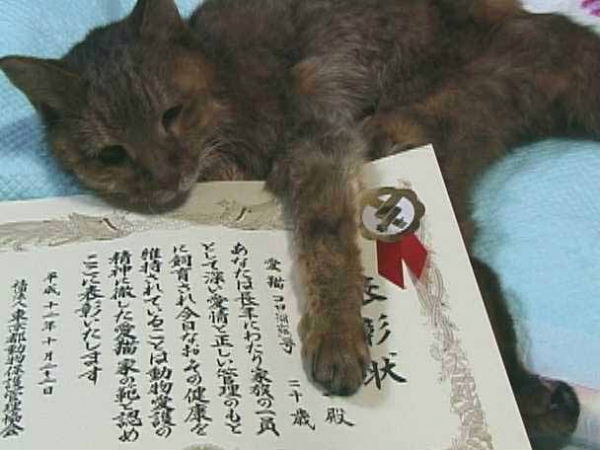 表彰状
殿
愛猫 コロ 号 二十歳
あなたは長年にわたり家族の一員
として深い愛情と正しい管理のもと
に飼育され今日なおその健康を
維持されていることは動物愛護の
精神に徹した愛猫家の範と認め
ここに表彰いたします
平成十二年十月二十二日
東京都動物保護管理協会